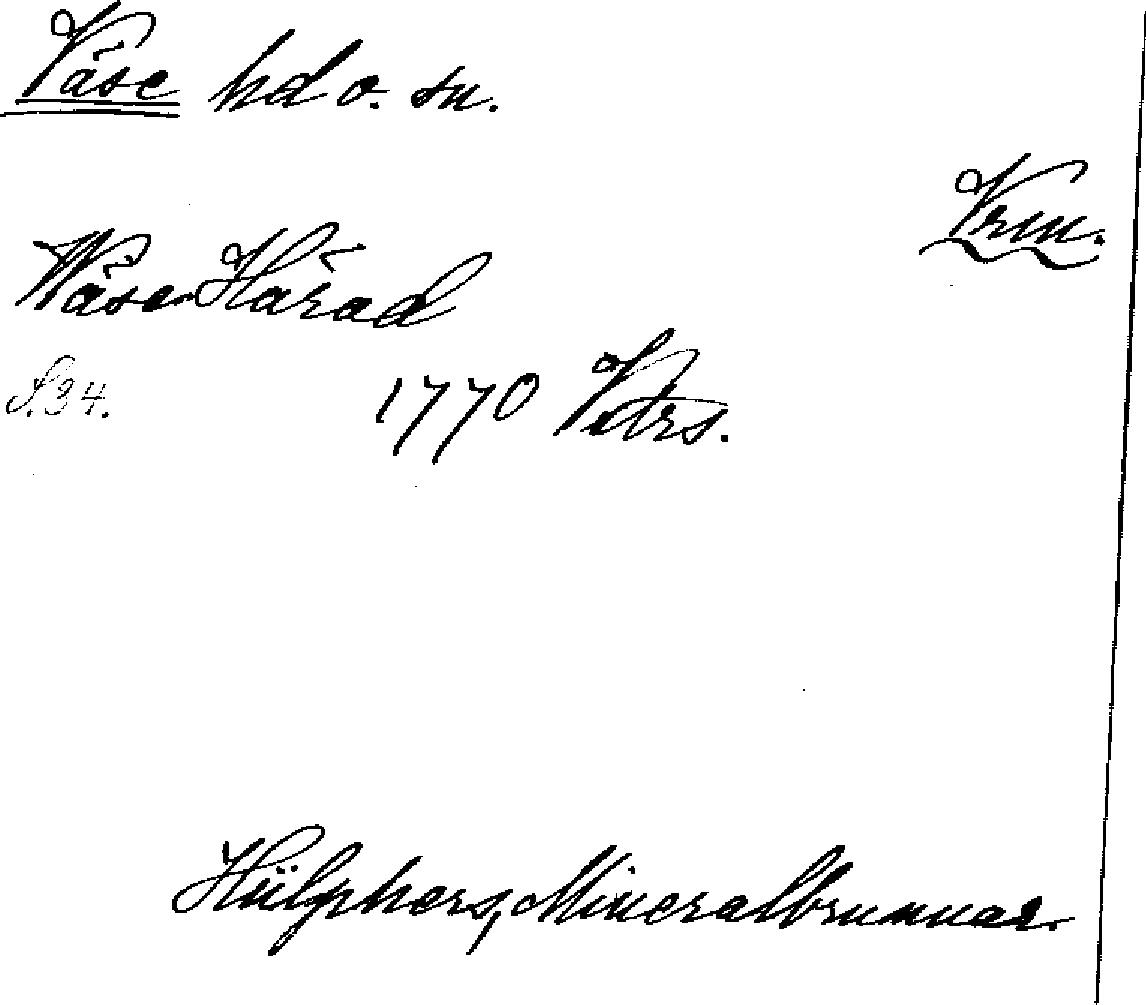 Väse hd o. sn.
Vrm.
Wäse-Härad
S. 34.
1770 Vtrs.
Hülphers, Mineralbrunnar.